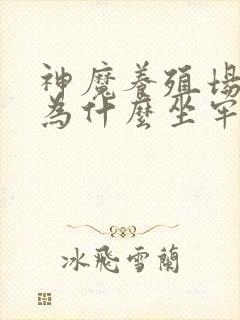 神魔養殖場
為什麼坐牢
冰飛雪蘭